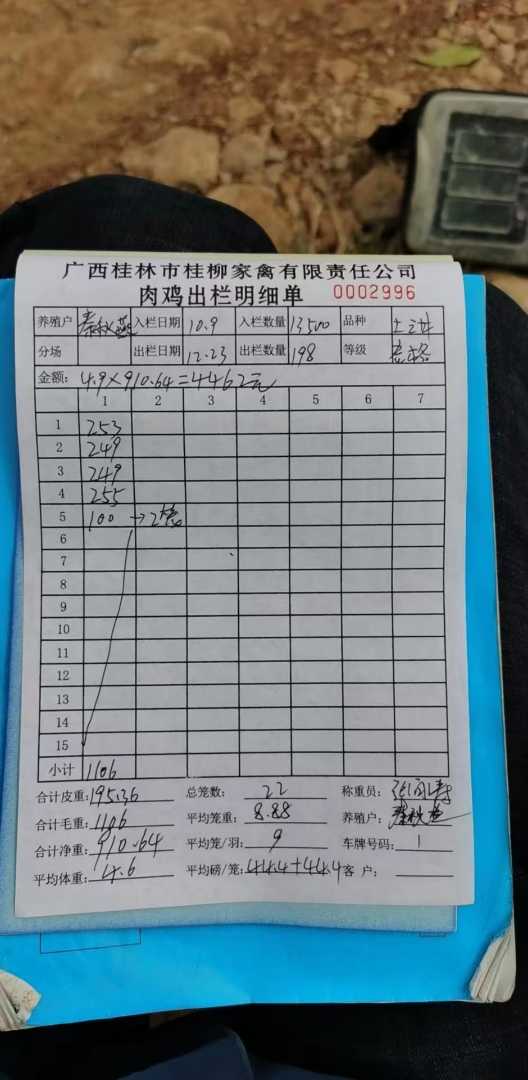 广西桂林市桂柳家禽有限责任公司
肉鸡出栏明细单 0002996
养殖户 秦秋燕 入栏日期 10.9 入栏数量 13500 品种
分场 出栏日期 12.23 出栏数量 198 等级
金额: 4.9×910.64=4462元
1 2 3 4 5 6 7
1 253
2 249
3 249
4 255
5 100 →2笼
6
7
8
9
10
11
12
13
14
15
小计 1106
合计皮重: 195.36 总笼数: 22 称重员:
合计毛重: 1106 平均笼重: 8.88 养殖户: 秦秋燕
合计净重: 910.64 平均笼/羽: 9 车牌号码: 1
平均体重: 4.6 平均磅/笼: 44.4+44.4 客 户: